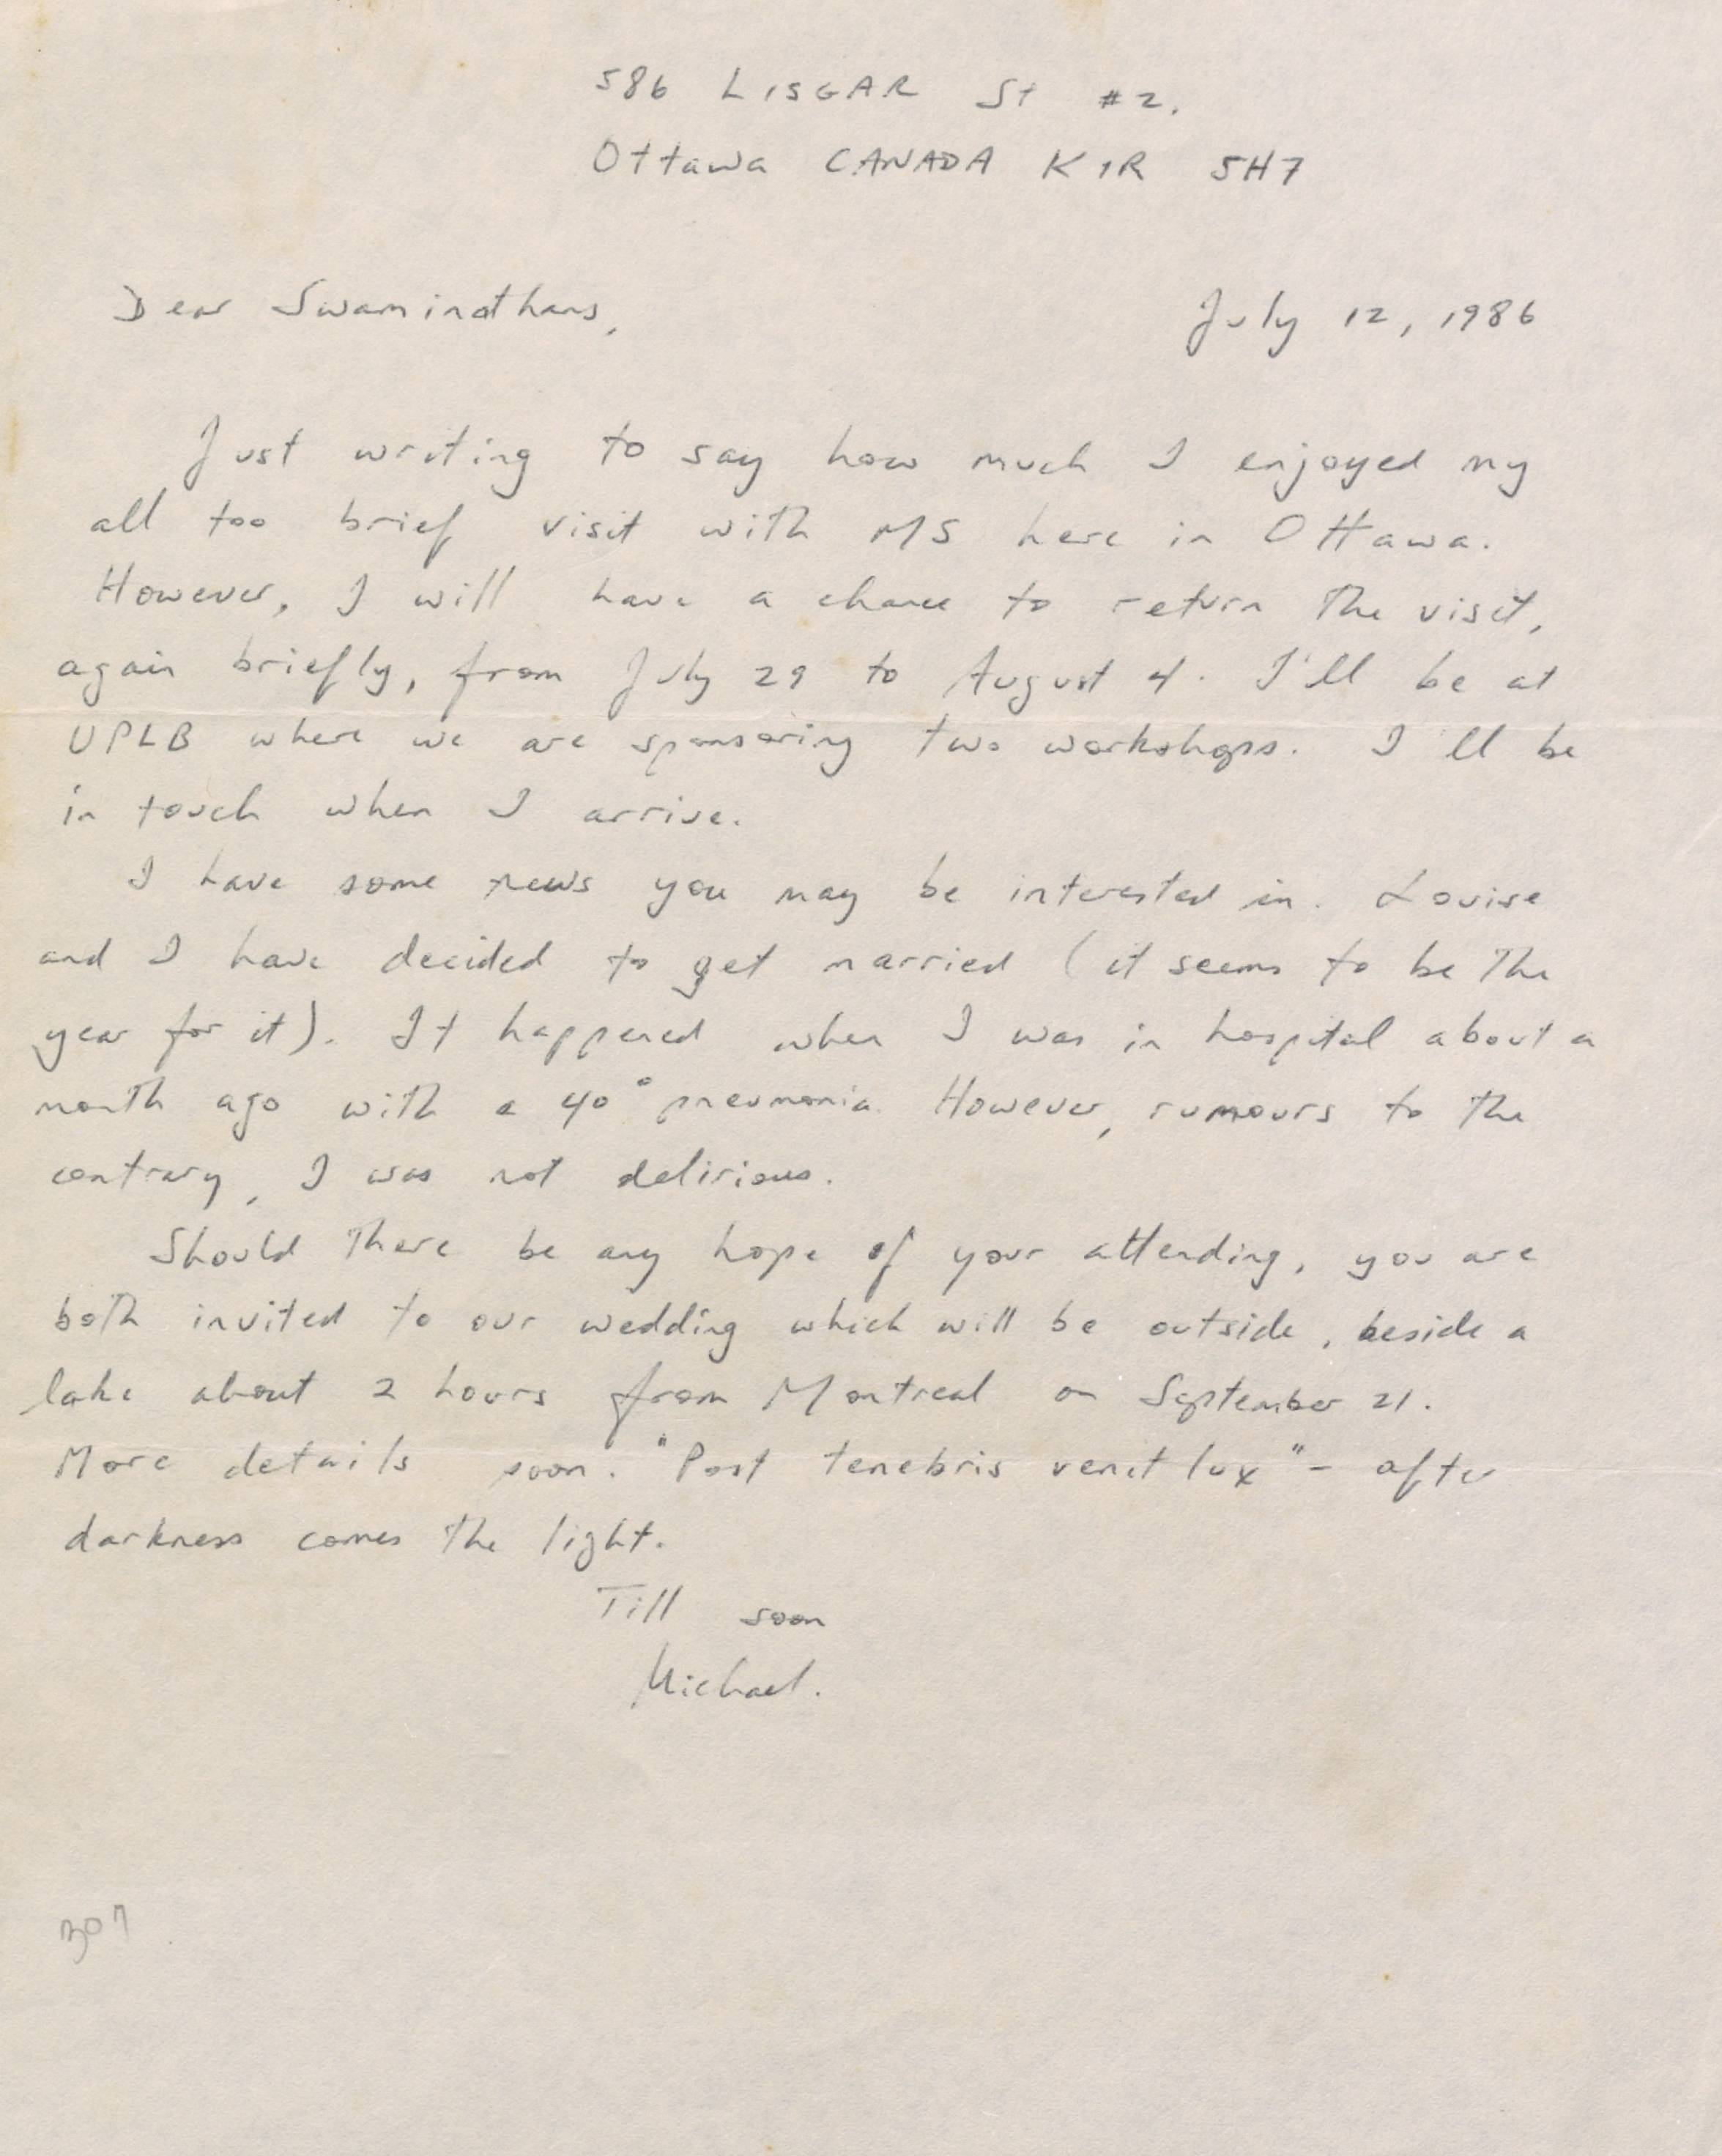 586 LISGAR St #2.
Ottawa CANADA K1R 5H7
Dear Swaminathans,
July 12, 1986
Just writing to say how much I enjoyed my
all too brief visit with MS here in Ottawa.
However, I will have a chance to return the visit,
again briefly, from July 29 to August 4. I'll be at
UPLB where we are sponsoring two workshops. I'll be
in touch when I arrive.
I have some news you may be interested in. Louise
and I have decided to get married (it seems to be the
year for it). It happened when I was in hospital about a
month ago with a 40° pneumonia. However, rumours to the
contrary, I was not delirious.
Should there be any hope of your attending, you are
both invited to our wedding which will be outside, beside a
lake about 2 hours from Montreal on September 21.
More details soon. "Post tenebris venit lux" - after
darkness comes the light.
Till soon
Michael.
307